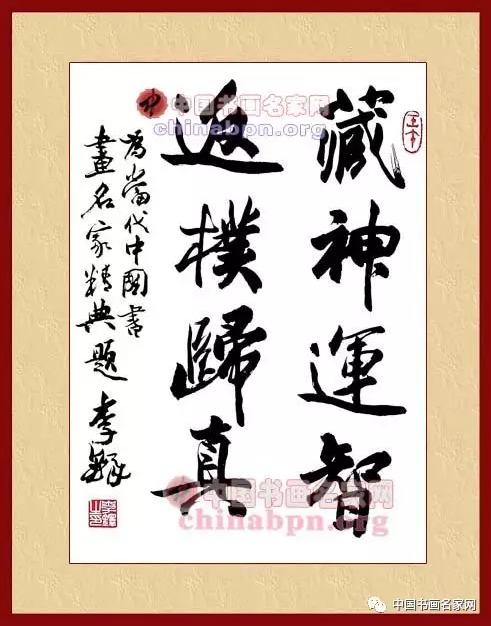 藏神運智
返樸歸真
為當代中國書
畫名家精典題 李鐸
中国书画名家网
chinabpn.org
中国书画名家网
chinabpn.org
中国书画名家网